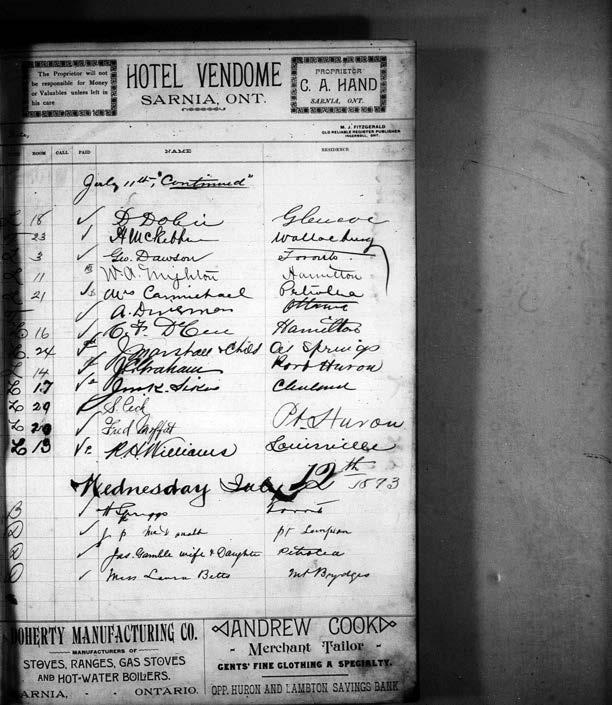 The Proprietor will not
be responsible for Money
or Valuables unless left in
his care
HOTEL VENDOME
SARNIA, ONT.
PROPRIETOR
C. A. HAND
SARNIA, ONT.
M. J. FITZGERALD
OLD RELIABLE REGISTER PUBLISHER
INGERSOLL, ONT.
ROOM CALL PAID NAME RESIDENCE
July 11th, "Continued"
18 D Dobie Glencoe
23 A McKebbin Wallaceburg
3 Geo. Dawson Toronto
11 W. A. Mighton Hamilton
21 Mrs Carmichael Petrolea
A. Ottawa
16 Hamilton
24 J Marshall & Child Oil Springs
14 Port Huron
17 Cleveland
29 S. Peck
29 Fred Moffat Pt. Huron
13 R H Williams Louisville
Wednesday July 12th 1893
H Spriggs Toronto
J P
Jas. Gamble wife & Daughter Petrolea
Miss Laura Betts Mt Brydges
DOHERTY MANUFACTURING CO.
MANUFACTURERS OF
STOVES, RANGES, GAS STOVES
AND HOT-WATER BOILERS.
SARNIA, - - ONTARIO.
ANDREW COOK
- Merchant Tailor -
GENTS' FINE CLOTHING A SPECIALTY.
OPP. HURON AND LAMBTON SAVINGS BANK